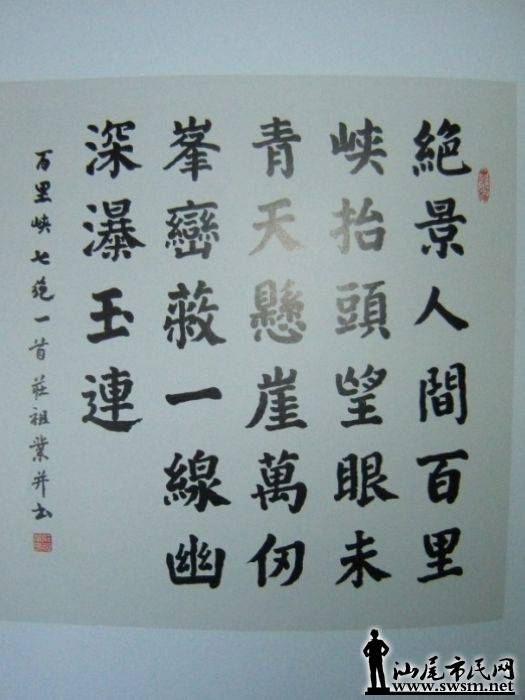 絕景人間百里
峽抬頭望眼未
青天懸崖萬仞
峯巒蔽一線幽
深瀑玉連
百里峽七絕一首莊祖業并书
汕尾市民网
www.swsm.net